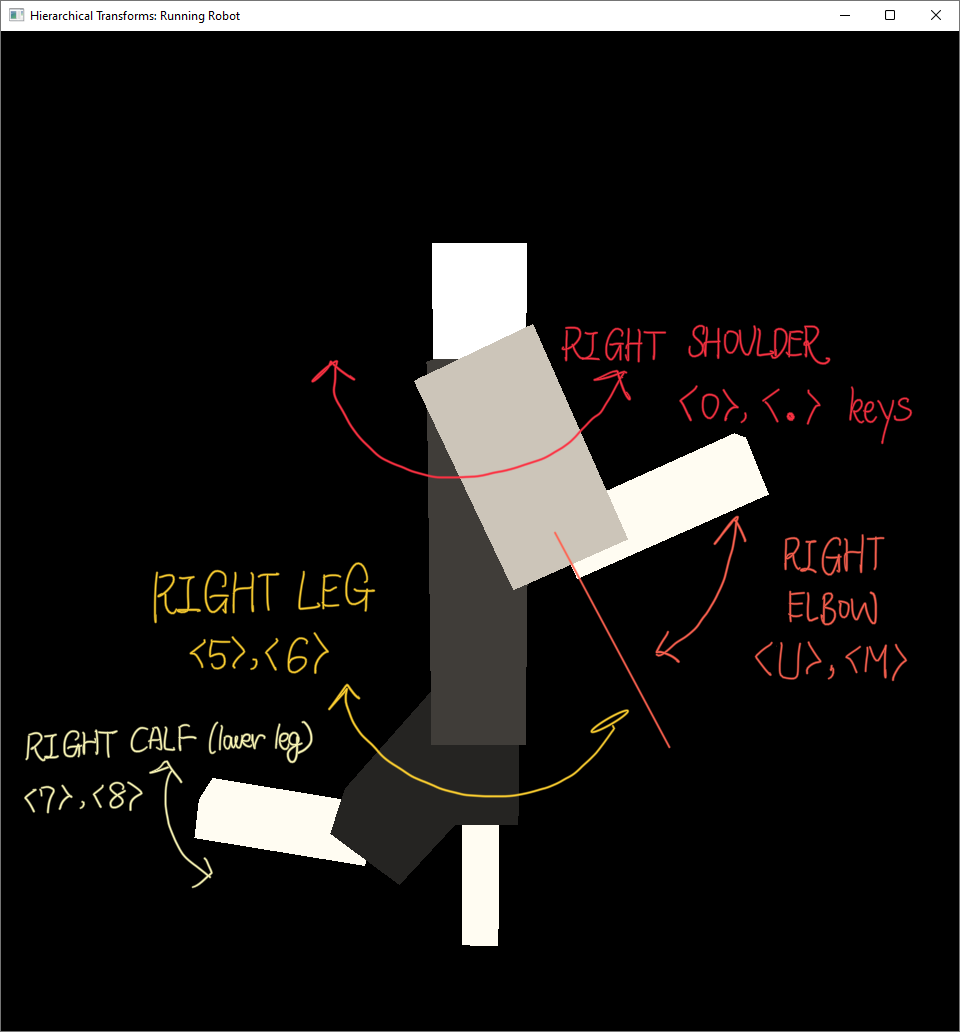 Hierarchical Transforms: Running Robot
RIGHT SHOULDER
<0>, <.> keys
RIGHT
ELBOW
<U>, <M>
RIGHT LEG
<5>, <6>
RIGHT CALF (lower leg)
<7>, <8>